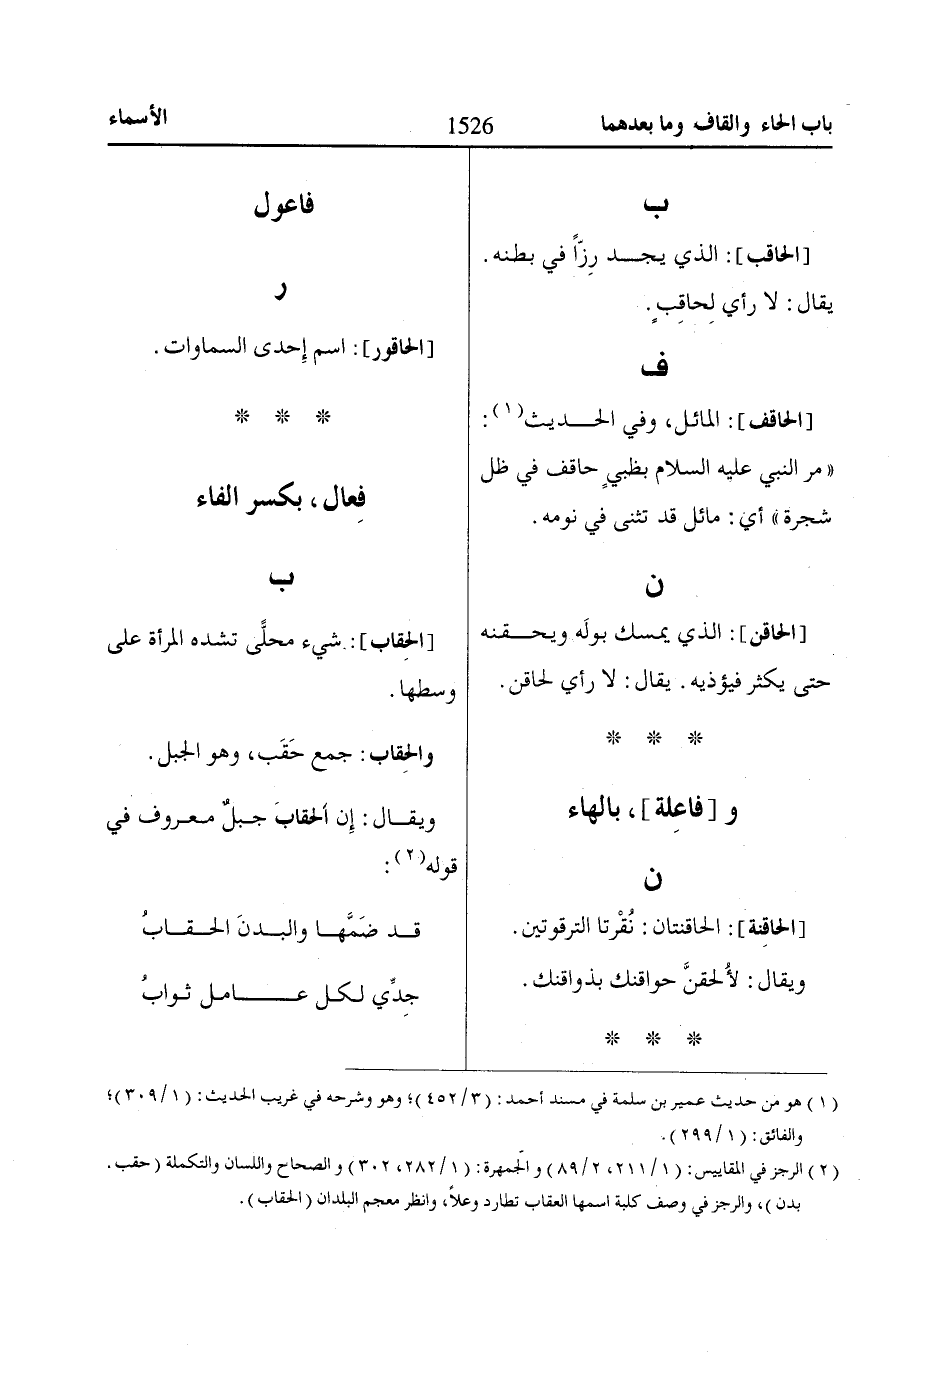 باب الحاء والقاف وما بعدهما
1526
الأسماء
ب
[الحاقب]: الذي يجـــد رِزّاً في بطنه.
يقال: لا رأي لِحاقِبٍ.
ف
[الحاقف]: المائل، وفي الحـــديث(١):
«مر النبي عليه السلام بظبيٍ حاقف في ظل
شجرة» أي: مائل قد تثنى في نومه.
ن
[الحاقن]: الذي يمسك بولَه ويحـــقنه
حتى يكثر فيؤذيه. يقال: لا رأي لحاقن.
* * *
و [فاعِلة]، بالهاء
ن
[الحاقِنة]: الحاقنتان: نُقْرتا الترقوتين.
ويقال: لأُلحقنَّ حواقنك بذواقنك.
* * *
فاعول
ر
[الحاقور]: اسم إِحدى السماوات.
* * *
فِعال، بكسر الفاء
ب
[الحِقاب]: شيء محلَّى تشده المرأة على
وسطها.
والحِقاب: جمع حَقَب، وهو الجبل.
ويقـــال: إِن الحقابَ جـبلٌ مـعـروف في
قوله(٢):
قــد ضَمَّهــا والبــدنَ الحــقــابُ
جِدِّي لـكـل عـــامـل ثـوابُ
(١) هو من حديث عمير بن سلمة في مسند أحمد: (٣/ ٤٥٢)؛ وهو وشرحه في غريب الحديث: (١/ ٣٠٩)؛
والفائق: (١/ ٢٩٩).
(٢) الرجز في المقاييس: (١/ ٢١١، ٢/ ٨٩) والجمهرة: (١/ ٢٨٢، ٣٠٢) والصحاح واللسان والتكملة (حقب.
بدن)، والرجز في وصف كلبة اسمها العقاب تطارد وعلاً، وانظر معجم البلدان (الحقاب).